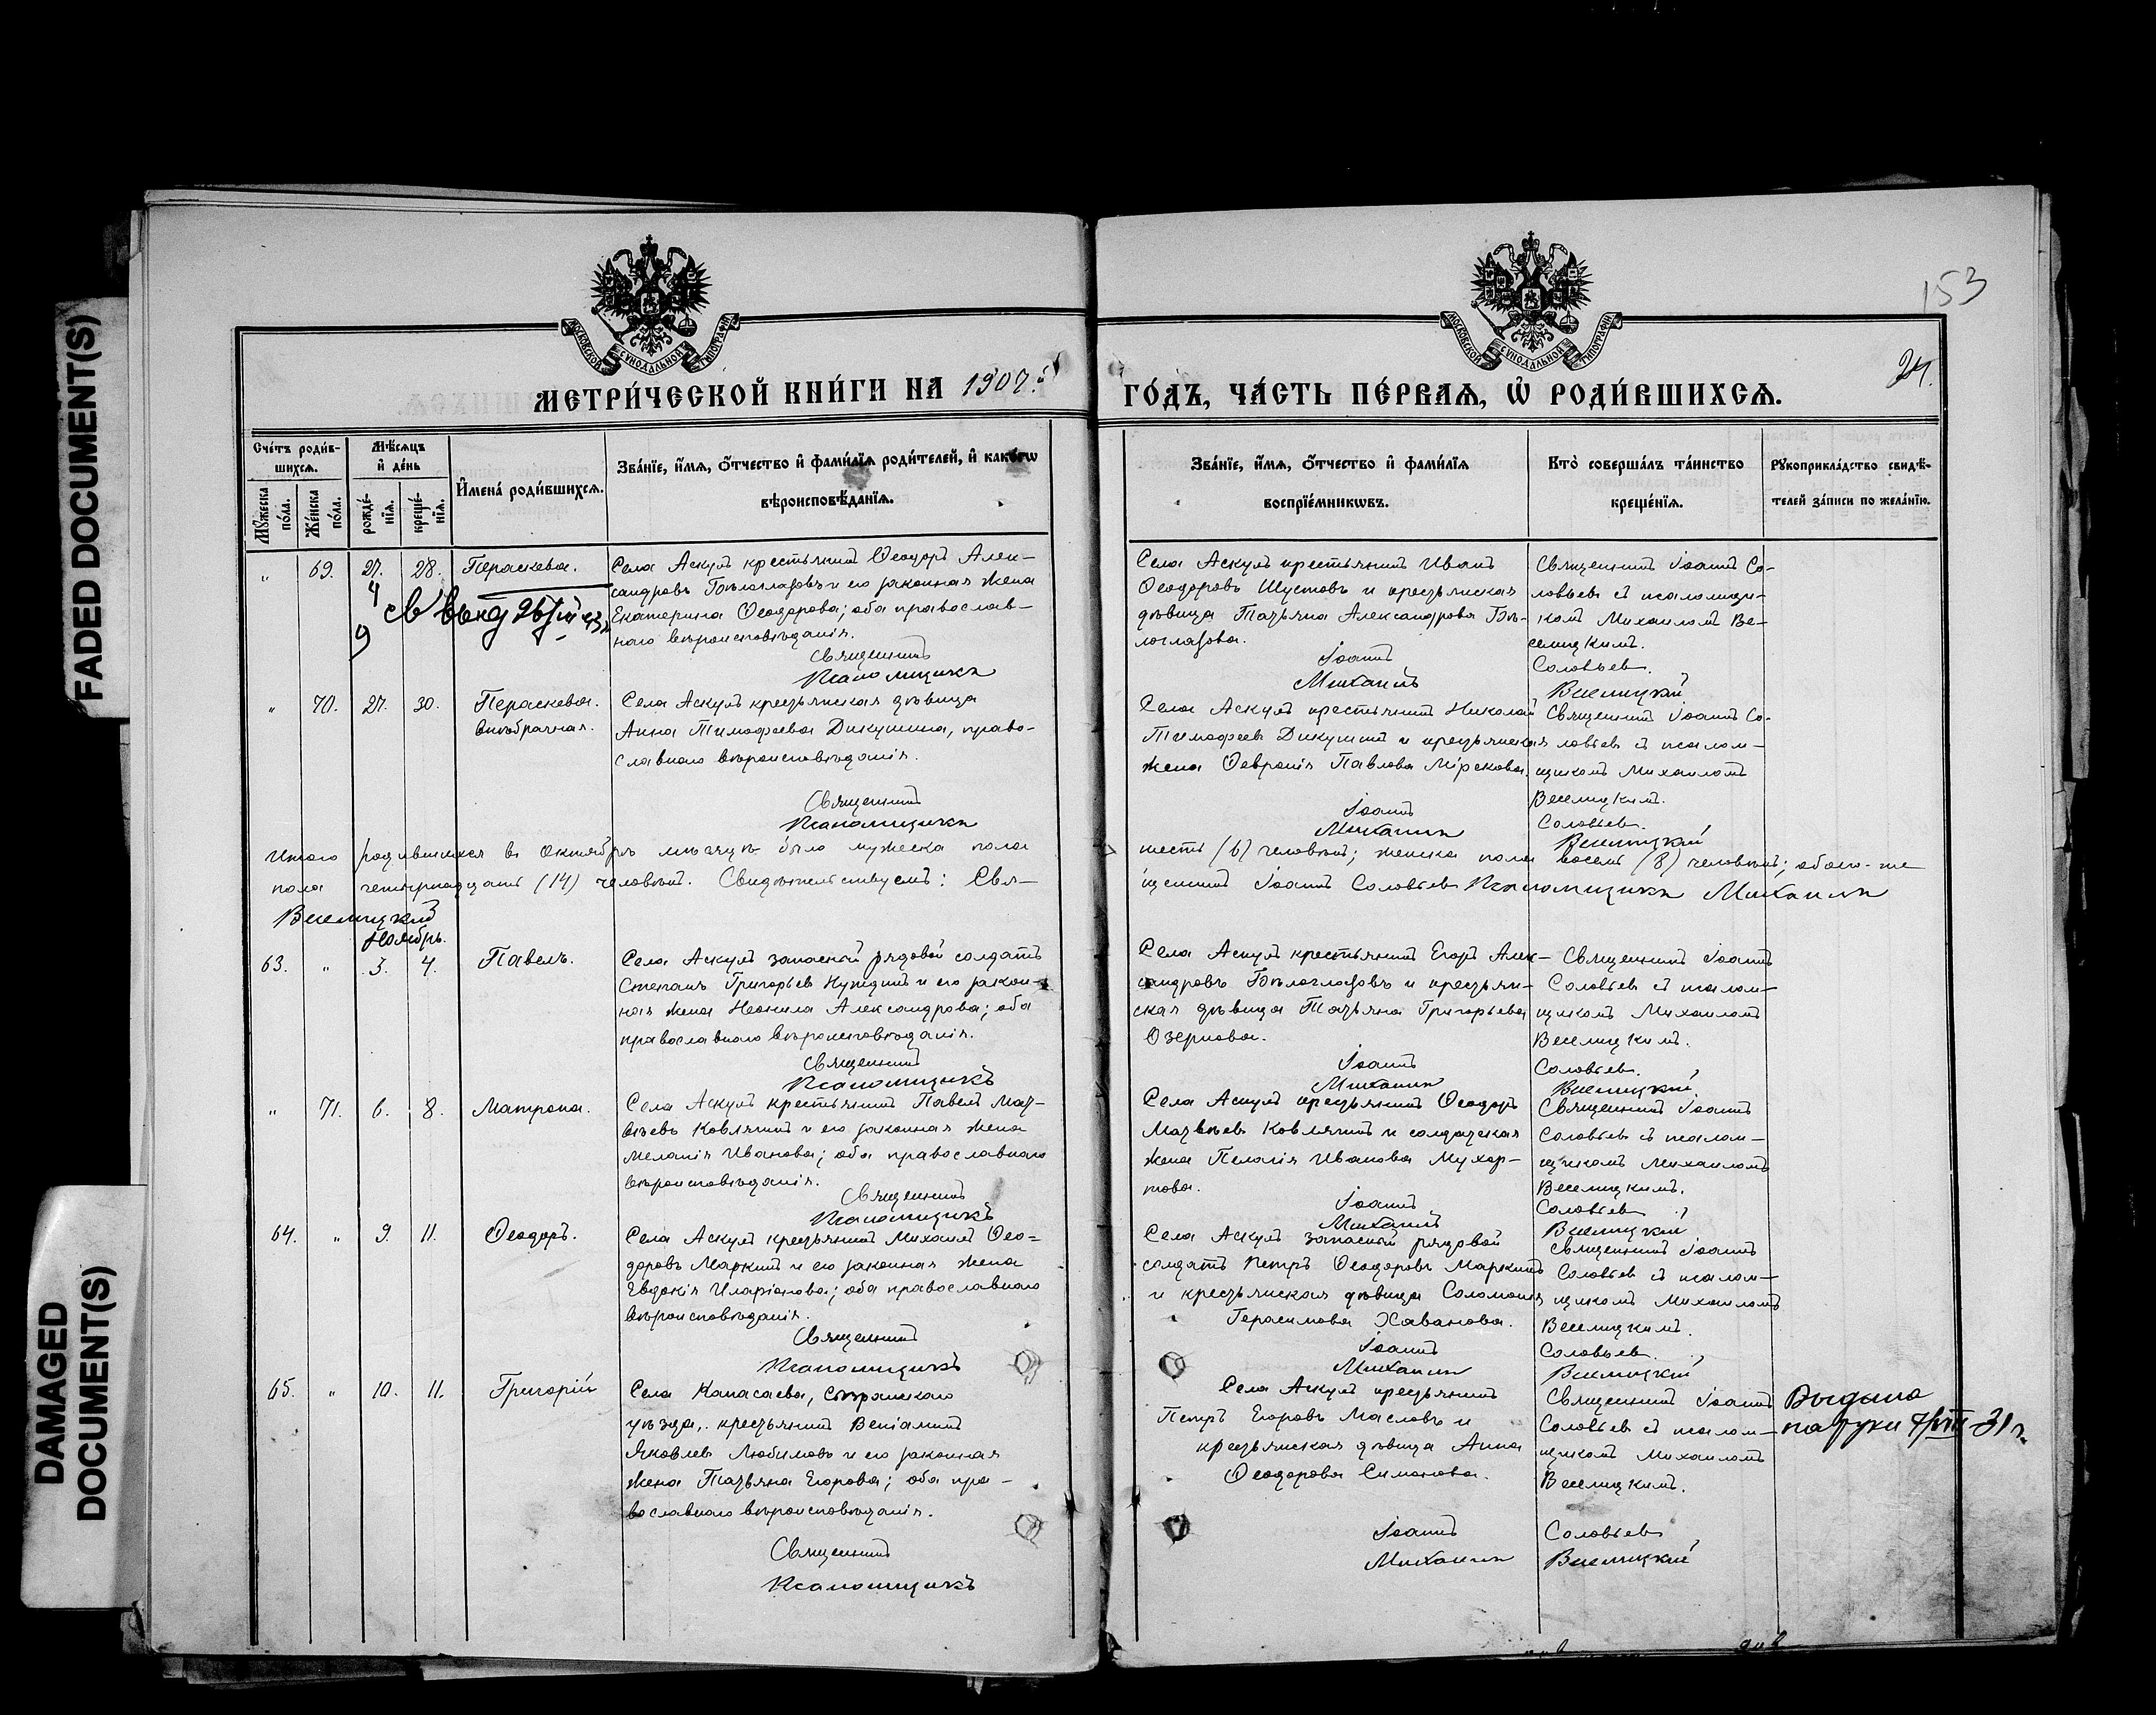 FADED DOCUMENT(S)
DAMAGED
DOCUMENT(S)
153
24.
МОСКОВСКОЙ СѴНОДАЛЬНОЙ ТИПОГРАФІИ
МОСКОВСКОЙ СѴНОДАЛЬНОЙ ТИПОГРАФІИ
МЕТРИ́ЧЕСКОЙ КНИ́ГИ НА 1907й
ГО́ДЪ, ЧА́СТЬ ПЕ́РВАѦ, Ѿ РОДИ́ВШИХСѦ.
Сче́тъ роди́в-
шихсѧ.
Мꙋжеска по́ла.
Же́нска по́ла.
Мѣ́сѧцъ
и҆ де́нь
рожде́-нїѧ.
креще́-нїѧ.
И҆мена̀ роди́вшихсѧ.
Зва́нїе, и҆́мѧ, ѻ҆́тчество и҆ фами́лїѧ роди́телей, и҆ како́гѡ
вѣроисповѣ́данїѧ.
Зва́нїе, и҆́мѧ, ѻ҆́тчество и҆ фами́лїѧ
воспрїе́мникѡвъ.
Кто̀ соверша́лъ та́инство
креще́нїѧ.
Рꙋкоприкла́дство свидѣ́-
телей за́писи по жела́нїю.
„ 69. 27. 28. Параскева.
Села Аскулъ крестьянинъ Ѳеодоръ Алек-
сандровъ Бѣлоглазовъ и его законная жена
Екатерина Ѳеодорова; оба православ-
наго вѣроисповѣданія.
Священникъ
Псаломщикъ
Села Аскулъ крестьянинъ Иванъ
Ѳеодоровъ Шустовъ и крестьянская
дѣвица Татьяна Александрова Бѣ-
логлазова.
Іоаннъ
Михаилъ
Священникъ Іоаннъ Со-
ловьевъ съ псаломщи-
комъ Михаиломъ Ве-
селицкимъ.
Соловьевъ.
Веселицкій
„ 70. 27. 30. Параскева.
внѣбрачная.
Села Аскулъ крестьянская дѣвица
Анна Тимофеева Дикушина, право-
славнаго вѣроисповѣданія.
Священникъ
Псаломщикъ
Села Аскулъ крестьянинъ Николай
Тимофеевъ Дикушинъ и крестьянская
жена Ѳевронія Павлова
Іоаннъ
Михаилъ
Священникъ Іоаннъ Со-
ловьевъ съ псалом-
щикомъ Михаиломъ
Веселицкимъ.
Соловьевъ.
Веселицкій
Итого родившихся въ Октябрѣ мѣсяцѣ было мужеска пола
шесть (6) человѣкъ; женска пола восемь (8) человѣкъ; обоего-же
пола четырнадцать (14) человѣкъ. Свидѣтельствуемъ: Свя-
щенникъ Іоаннъ Соловьевъ Псаломщикъ Михаилъ
Веселицкій
Ноябрь.
63. „ 3. 4. Павелъ.
Села Аскулъ запасный рядовой солдатъ
Степанъ Григорьевъ и его закон-
ная жена Неонила Александрова; оба
православнаго вѣроисповѣданія.
Священникъ
Псаломщикъ
Села Аскулъ крестьянинъ Егоръ Алек-
сандровъ Бѣлоглазовъ и крестьян-
ская дѣвица Татьяна Григорьева
Озернова.
Іоаннъ
Михаилъ
Священникъ Іоаннъ
Соловьевъ съ псалом-
щикомъ Михаиломъ
Веселицкимъ.
Соловьевъ.
Веселицкій
„ 71. 6. 8. Матрона.
Села Аскулъ крестьянинъ Павелъ Мат-
вѣевъ Ковлягинъ и его законная жена
Меланія Иванова; оба православнаго
вѣроисповѣданія.
Священникъ
Псаломщикъ
Села Аскулъ крестьянинъ Ѳеодоръ
Матвѣевъ Ковлягинъ и солдатская
жена Пелагія Иванова Мухор-
това.
Іоаннъ
Михаилъ
Священникъ Іоаннъ
Соловьевъ съ псалом-
щикомъ Михаиломъ
Веселицкимъ.
Соловьевъ
Веселицкій
64. „ 9. 11. Ѳеодоръ.
Села Аскулъ крестьянинъ Михаилъ Ѳео-
доровъ Маркинъ и его законная жена
Евдокія Иларіонова; оба православнаго
вѣроисповѣданія.
Священникъ
Псаломщикъ
Села Аскулъ запасный рядовой
солдатъ Петръ Ѳеодоровъ Маркинъ
и крестьянская дѣвица Соломонія
Герасимова Хаванова.
Іоаннъ
Михаилъ
Священникъ Іоаннъ
Соловьевъ съ псалом-
щикомъ Михаиломъ
Веселицкимъ.
Соловьевъ.
Веселицкій
65. „ 10. 11. Григорій
Села Капасаева, Сызранскаго
уѣзда, крестьянинъ Веніаминъ
Яковлевъ Любимовъ и его законная
жена Татьяна Егорова; оба пра-
вославнаго вѣроисповѣданія.
Священникъ
Псаломщикъ
Села Аскулъ крестьянинъ
Петръ Егоровъ Масловъ и
крестьянская дѣвица Анна
Ѳеодорова Симонова.
Іоаннъ
Михаилъ
Священникъ Іоаннъ
Соловьевъ съ псалом-
щикомъ Михаиломъ
Веселицкимъ.
Соловьевъ
Веселицкій
Выдана
на руки 7/VIII-31 г.